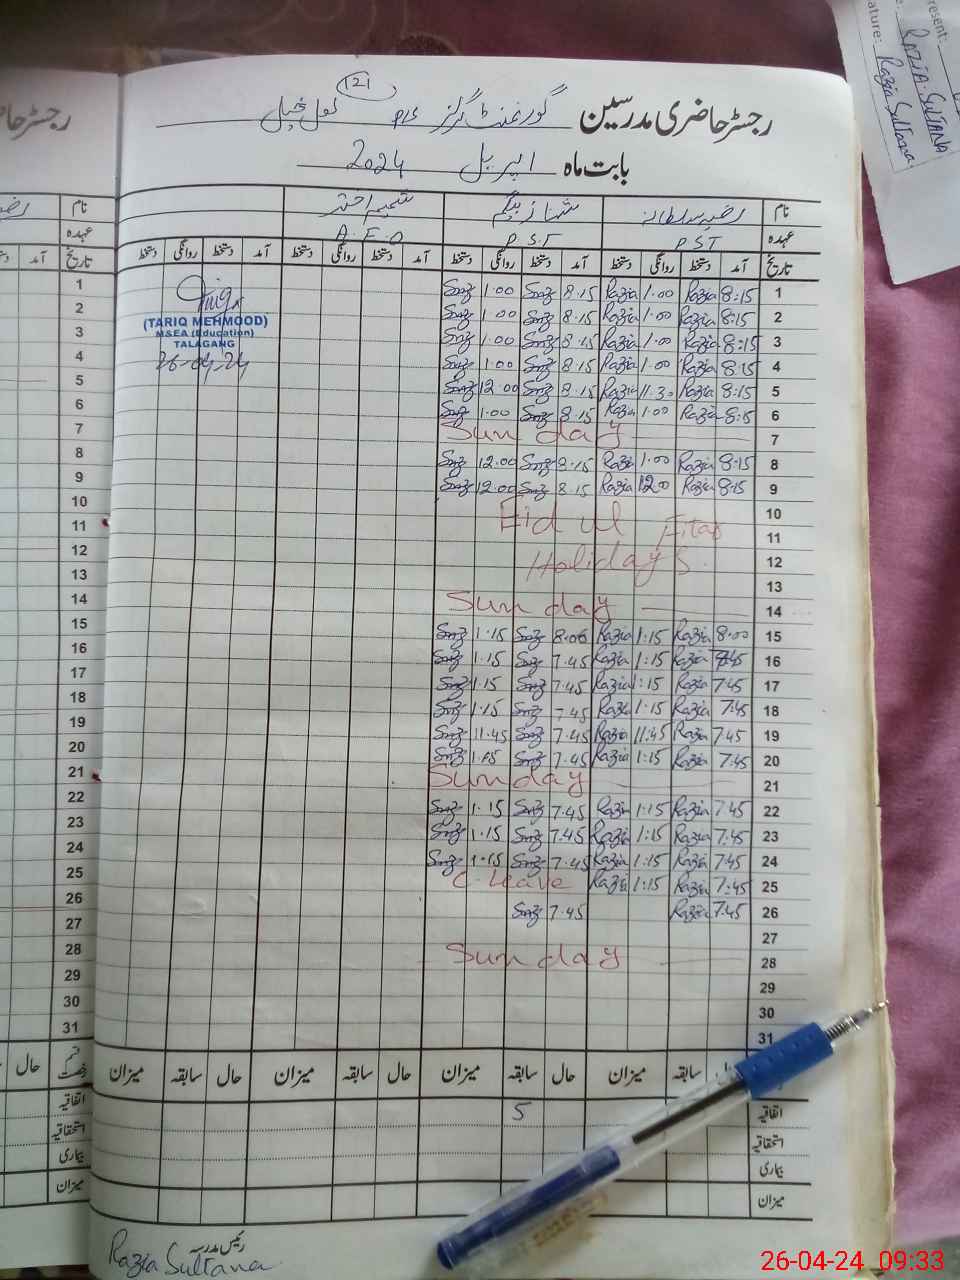 121
رجسٹر حاضری مدرسین گورنمنٹ گرلز P/S
بابت ماہ اپریل 2024
present:
RAZIA SULTANA
ature: Razia Sultana
نام رضیہ سلطانہ شہناز بیگم شمیم اختر
عہدہ PST P.S.T A.E.O
تاریخ آمد دستخط روانگی دستخط آمد دستخط روانگی دستخط آمد دستخط روانگی دستخط آمد دستخط روانگی دستخط
1 8:15 Razia 1.00 Razia 8.15 1.00 1
2 8:15 Razia 1.00 Razia 8.15 1.00 2
3 8:15 Razia 1.00 Razia 8.15 1.00 3
4 8:15 Razia 1.00 Razia 8.15 1.00 4
5 8:15 Razia 11.30 Razia 8.15 12.00 5
6 8:15 Razia 1.00 Razia 8.15 1.00 6
7 Sunday 7
8 8:15 Razia 1.00 Razia 8.15 12.00 8
9 8:15 Razia 12.00 Razia 8.15 12.00 9
10 10
11 Eid ul Fitar 11
12 Holidays 12
13 13
14 Sunday 14
15 8.00 Razia 1:15 Razia 8.00 1.15 15
16 7.45 Razia 1:15 Razia 7.45 1.15 16
17 7.45 Razia 1:15 Razia 7.45 1.15 17
18 7:45 Razia 1.15 Razia 7.45 1.15 18
19 7.45 Razia 11.45 Razia 7.45 11.45 19
20 7.45 Razia 1:15 Razia 7.45 1.15 20
21 Sunday 21
22 7.45 Razia 1:15 Razia 7.45 1.15 22
23 7.45 Razia 1:15 Razia 7.45 1.15 23
24 7.45 Razia 1:15 Razia 7.45 1.15 24
25 7:45 Razia 1:15 Razia C-Leave 25
26 7.45 Razia 7.45 26
27 27
28 Sunday 28
29 29
30 30
31 31
(TARIQ MEHMOOD)
MSEA (Education)
TALAGANG
26-04-24
سابقہ میزان حال سابقہ میزان حال سابقہ میزان حال سابقہ میزان
اتفاقیہ 5 اتفاقیہ
استحقاقیہ استحقاقیہ
بیماری بیماری
میزان میزان
رئیس مدرسہ
Razia Sultana
26-04-24 09:33